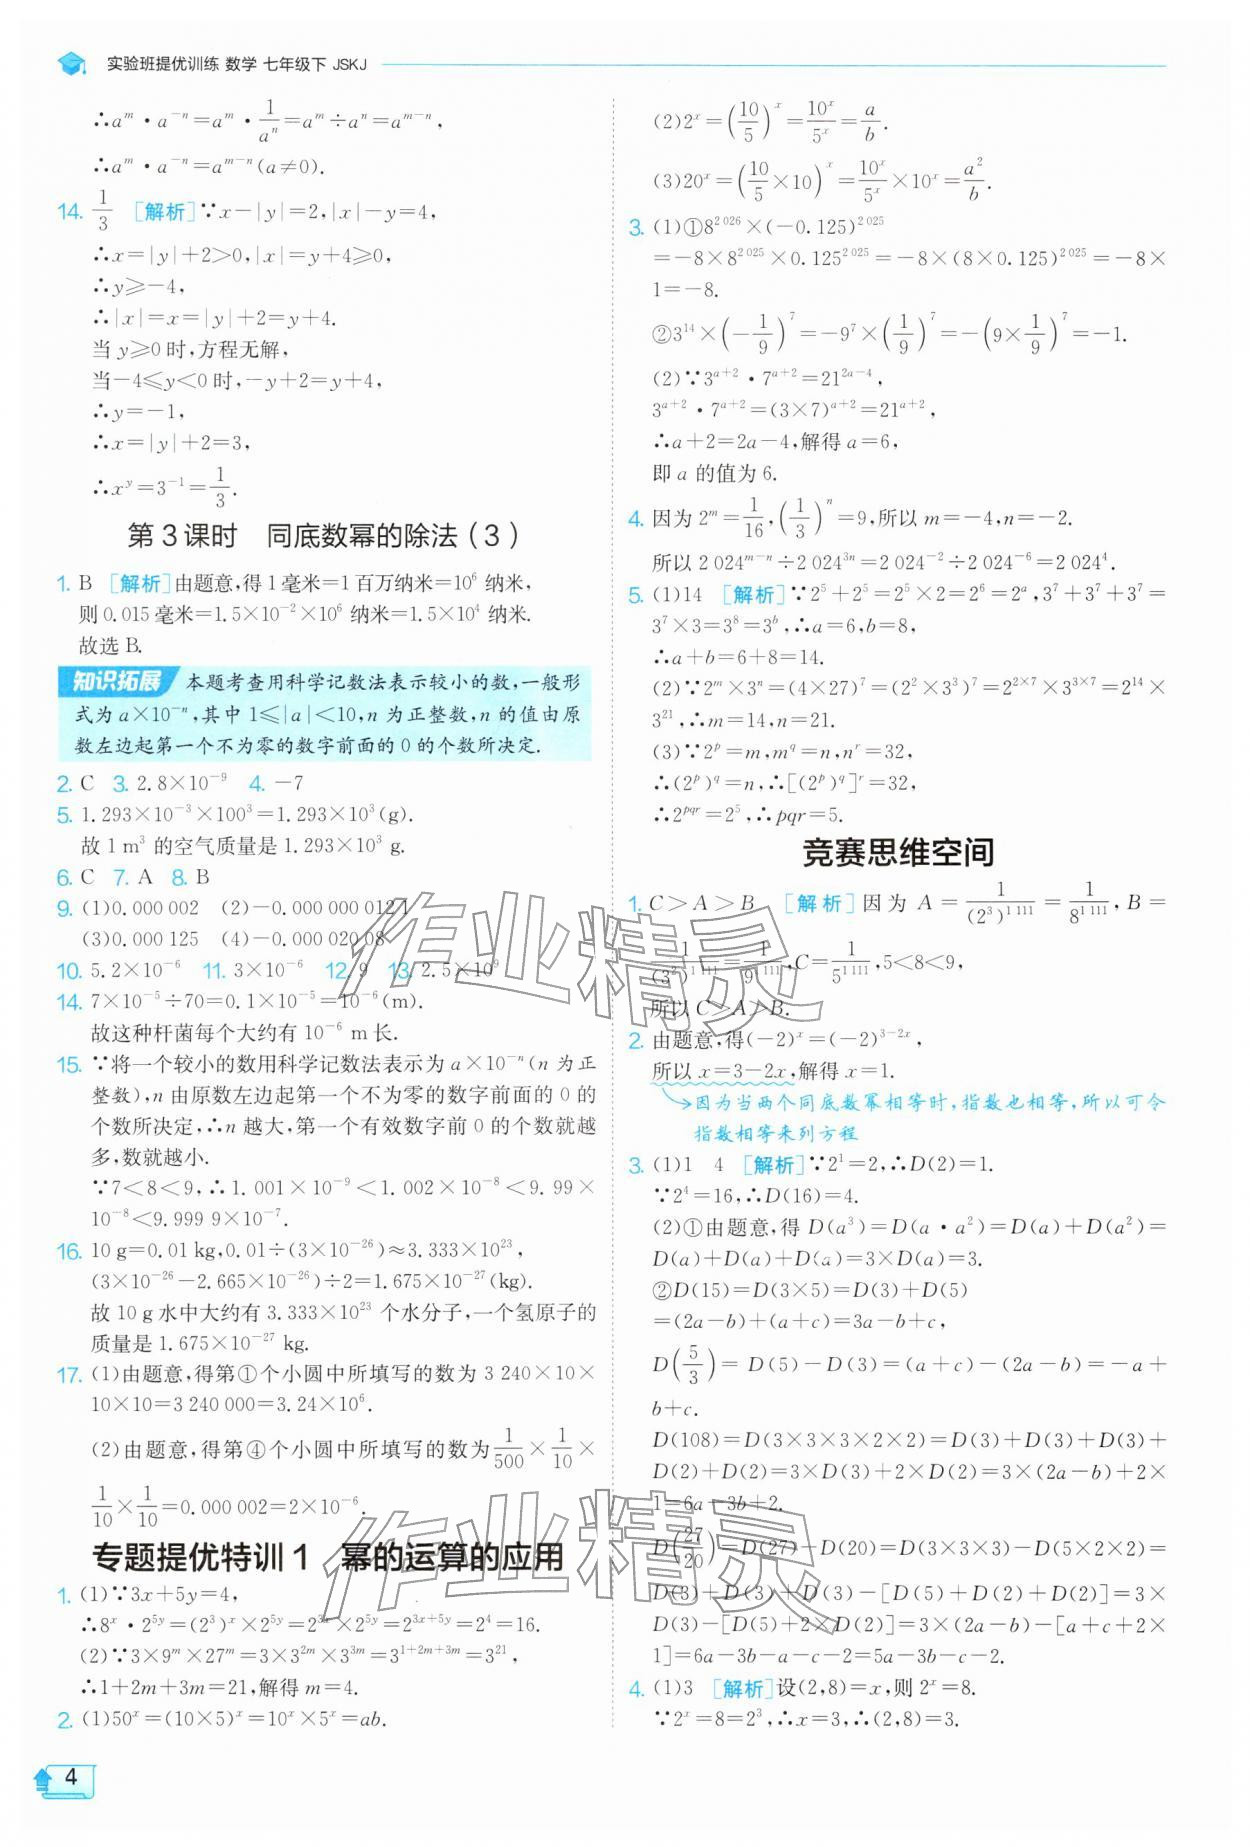 实验班提优训练 数学 七年级下 JSKJ
∴a^m·a^{-n}=a^m·\frac{1}{a^n}=a^m÷a^n=a^{m-n},
∴a^m·a^{-n}=a^{m-n}(a≠0).
14. \frac{1}{3} [解析]∵x-|y|=2,|x|-y=4,
∴x=|y|+2>0,|x|=y+4≥0,
∴y≥-4,
∴|x|=x=|y|+2=y+4.
当y≥0时,方程无解,
当-4≤y<0时,-y+2=y+4,
∴y=-1,
∴x=|y|+2=3,
∴x^y=3^{-1}=\frac{1}{3}.
第3课时 同底数幂的除法(3)
1. B [解析]由题意,得1毫米=1百万纳米=10^6 纳米,
则0.015毫米=1.5×10^{-2}×10^6 纳米=1.5×10^4 纳米.
故选B.
知识拓展 本题考查用科学记数法表示较小的数,一般形
式为a×10^{-n},其中1≤|a|<10,n为正整数,n的值由原
数左边起第一个不为零的数字前面的0的个数所决定.
2. C 3. 2.8×10^{-9} 4. -7
5. 1.293×10^{-3}×100^3=1.293×10^3(g).
故1 m^3 的空气质量是1.293×10^3 g.
6. C 7. A 8. B
9. (1)0.000 002 (2)-0.000 000 012 1
(3)0.000 125 (4)-0.000 020 08
10. 5.2×10^{-6} 11. 3×10^{-6} 12. 9 13. 2.5×10^9
14. 7×10^{-5}÷70=0.1×10^{-5}=10^{-6}(m).
故这种杆菌每个大约有10^{-6} m长.
15. ∵将一个较小的数用科学记数法表示为a×10^{-n}(n为正
整数),n由原数左边起第一个不为零的数字前面的0的
个数所决定,∴n越大,第一个有效数字前0的个数就越
多,数就越小.
∵7<8<9,∴1.001×10^{-9}<1.002×10^{-8}<9.99×
10^{-8}<9.999 9×10^{-7}.
16. 10 g=0.01 kg,0.01÷(3×10^{-26})≈3.333×10^{23},
(3×10^{-26}-2.665×10^{-26})÷2=1.675×10^{-27}(kg).
故10 g水中大约有3.333×10^{23} 个水分子,一个氢原子的
质量是1.675×10^{-27} kg.
17. (1)由题意,得第①个小圆中所填写的数为3 240×10×
10×10=3 240 000=3.24×10^6.
(2)由题意,得第④个小圆中所填写的数为\frac{1}{500}×\frac{1}{10}×
\frac{1}{10}×\frac{1}{10}=0.000 002=2×10^{-6}.
专题提优特训1 幂的运算的应用
1. (1)∵3x+5y=4,
∴8^x·2^{5y}=(2^3)^x×2^{5y}=2^{3x}×2^{5y}=2^{3x+5y}=2^4=16.
(2)∵3×9^m×27^m=3×3^{2m}×3^{3m}=3^{1+2m+3m}=3^{21},
∴1+2m+3m=21,解得m=4.
2. (1)50^x=(10×5)^x=10^x×5^x=ab.
(2)2^x=(\frac{10}{5})^x=\frac{10^x}{5^x}=\frac{a}{b}.
(3)20^x=(\frac{10}{5}×10)^x=\frac{10^x}{5^x}×10^x=\frac{a^2}{b}.
3. (1)①8^{2 026}×(-0.125)^{2 025}
=-8×8^{2 025}×0.125^{2 025}=-8×(8×0.125)^{2 025}=-8×
1=-8.
②3^{14}×(-\frac{1}{9})^7=-9^7×(\frac{1}{9})^7=-(9×\frac{1}{9})^7=-1.
(2)∵3^{a+2}·7^{a+2}=21^{2a-4},
3^{a+2}·7^{a+2}=(3×7)^{a+2}=21^{a+2},
∴a+2=2a-4,解得a=6,
即a的值为6.
4. 因为2^m=\frac{1}{16},(\frac{1}{3})^n=9,所以m=-4,n=-2.
所以2 024^{m-n}÷2 024^{3n}=2 024^{-2}÷2 024^{-6}=2 024^4.
5. (1)14 [解析]∵2^5+2^5=2^5×2=2^6=2^a,3^7+3^7+3^7=
3^7×3=3^8=3^b,∴a=6,b=8,
∴a+b=6+8=14.
(2)∵2^m×3^n=(4×27)^7=(2^2×3^3)^7=2^{2×7}×3^{3×7}=2^{14}×
3^{21},∴m=14,n=21.
(3)∵2^p=m,m^q=n,n^r=32,
∴(2^p)^q=n,∴[(2^p)^q]^r=32,
∴2^{pqr}=2^5,∴pqr=5.
竞赛思维空间
1. C>A>B [解析]因为A=\frac{1}{(2^3)^{1 111}}=\frac{1}{8^{1 111}},B=
\frac{1}{(3^2)^{1 111}}=\frac{1}{9^{1 111}},C=\frac{1}{5^{1 111}},5<8<9,
所以C>A>B.
2. 由题意,得(-2)^x=(-2)^{3-2x},
所以x=3-2x,解得x=1.
因为当两个同底数幂相等时,指数也相等,所以可令
指数相等来列方程
3. (1)1 4 [解析]∵2^1=2,∴D(2)=1.
∵2^4=16,∴D(16)=4.
(2)①由题意,得D(a^3)=D(a·a^2)=D(a)+D(a^2)=
D(a)+D(a)+D(a)=3×D(a)=3.
②D(15)=D(3×5)=D(3)+D(5)
=(2a-b)+(a+c)=3a-b+c,
D(\frac{5}{3})=D(5)-D(3)=(a+c)-(2a-b)=-a+
b+c.
D(108)=D(3×3×3×2×2)=D(3)+D(3)+D(3)+
D(2)+D(2)=3×D(3)+2×D(2)=3×(2a-b)+2×
1=6a-3b+2.
D(\frac{27}{20})=D(27)-D(20)=D(3×3×3)-D(5×2×2)=
D(3)+D(3)+D(3)-[D(5)+D(2)+D(2)]=3×
D(3)-[D(5)+2×D(2)]=3×(2a-b)-[a+c+2×
1]=6a-3b-a-c-2=5a-3b-c-2.
4. (1)3 [解析]设(2,8)=x,则2^x=8.
∵2^x=8=2^3,∴x=3,∴(2,8)=3.
4
作业精灵
作业精灵